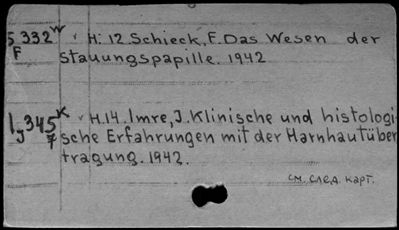 5 332 W ν H: 12 Schieck, F. Das Wesen der
F Stauungspapille. 1942
1, 345 K ν H.14. Imre, J. Klinische und histologi
J 7 sche Erfahrungen mit der Harnhautüber
tragung. 1942.
см. след. карт.